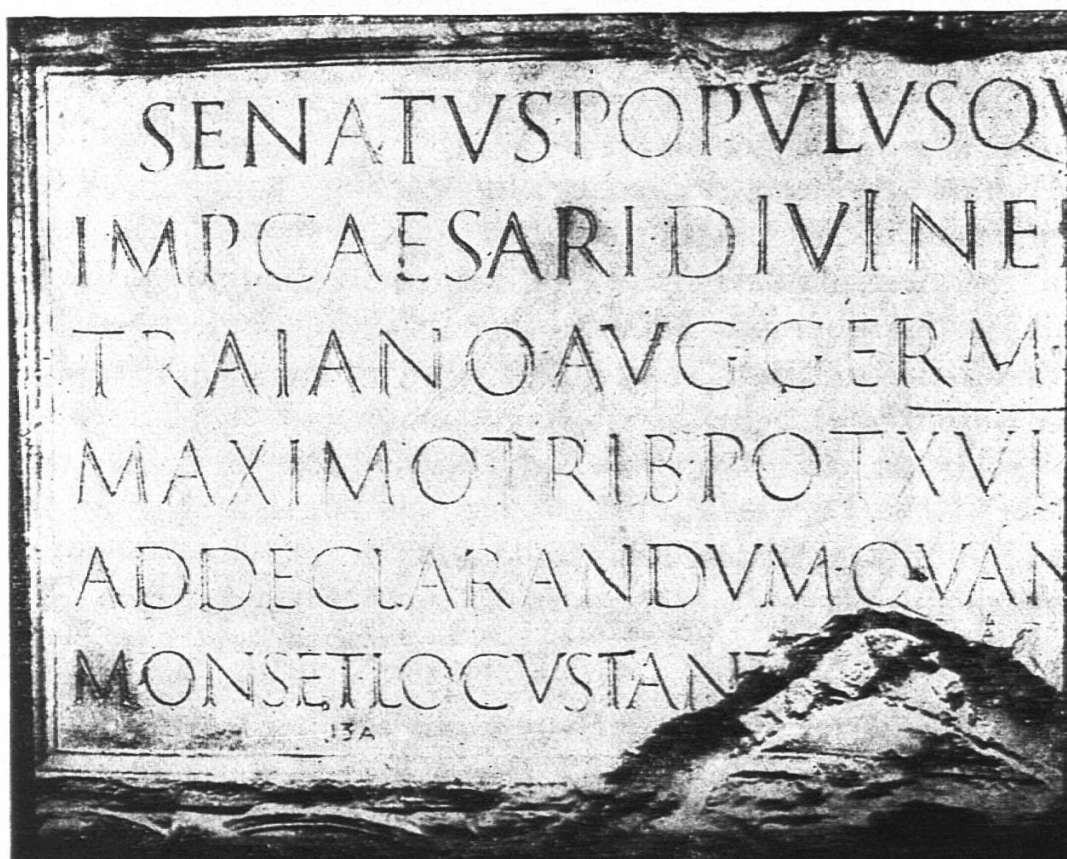 SENATVSPOPVLVSQV
IMPCAESARIDIVINE
TRAIANOAVGGERM
MAXIMOTRIBPOTXVI
ADDECLARANDVMQVAN
MONSETLOCVSTAN
13A